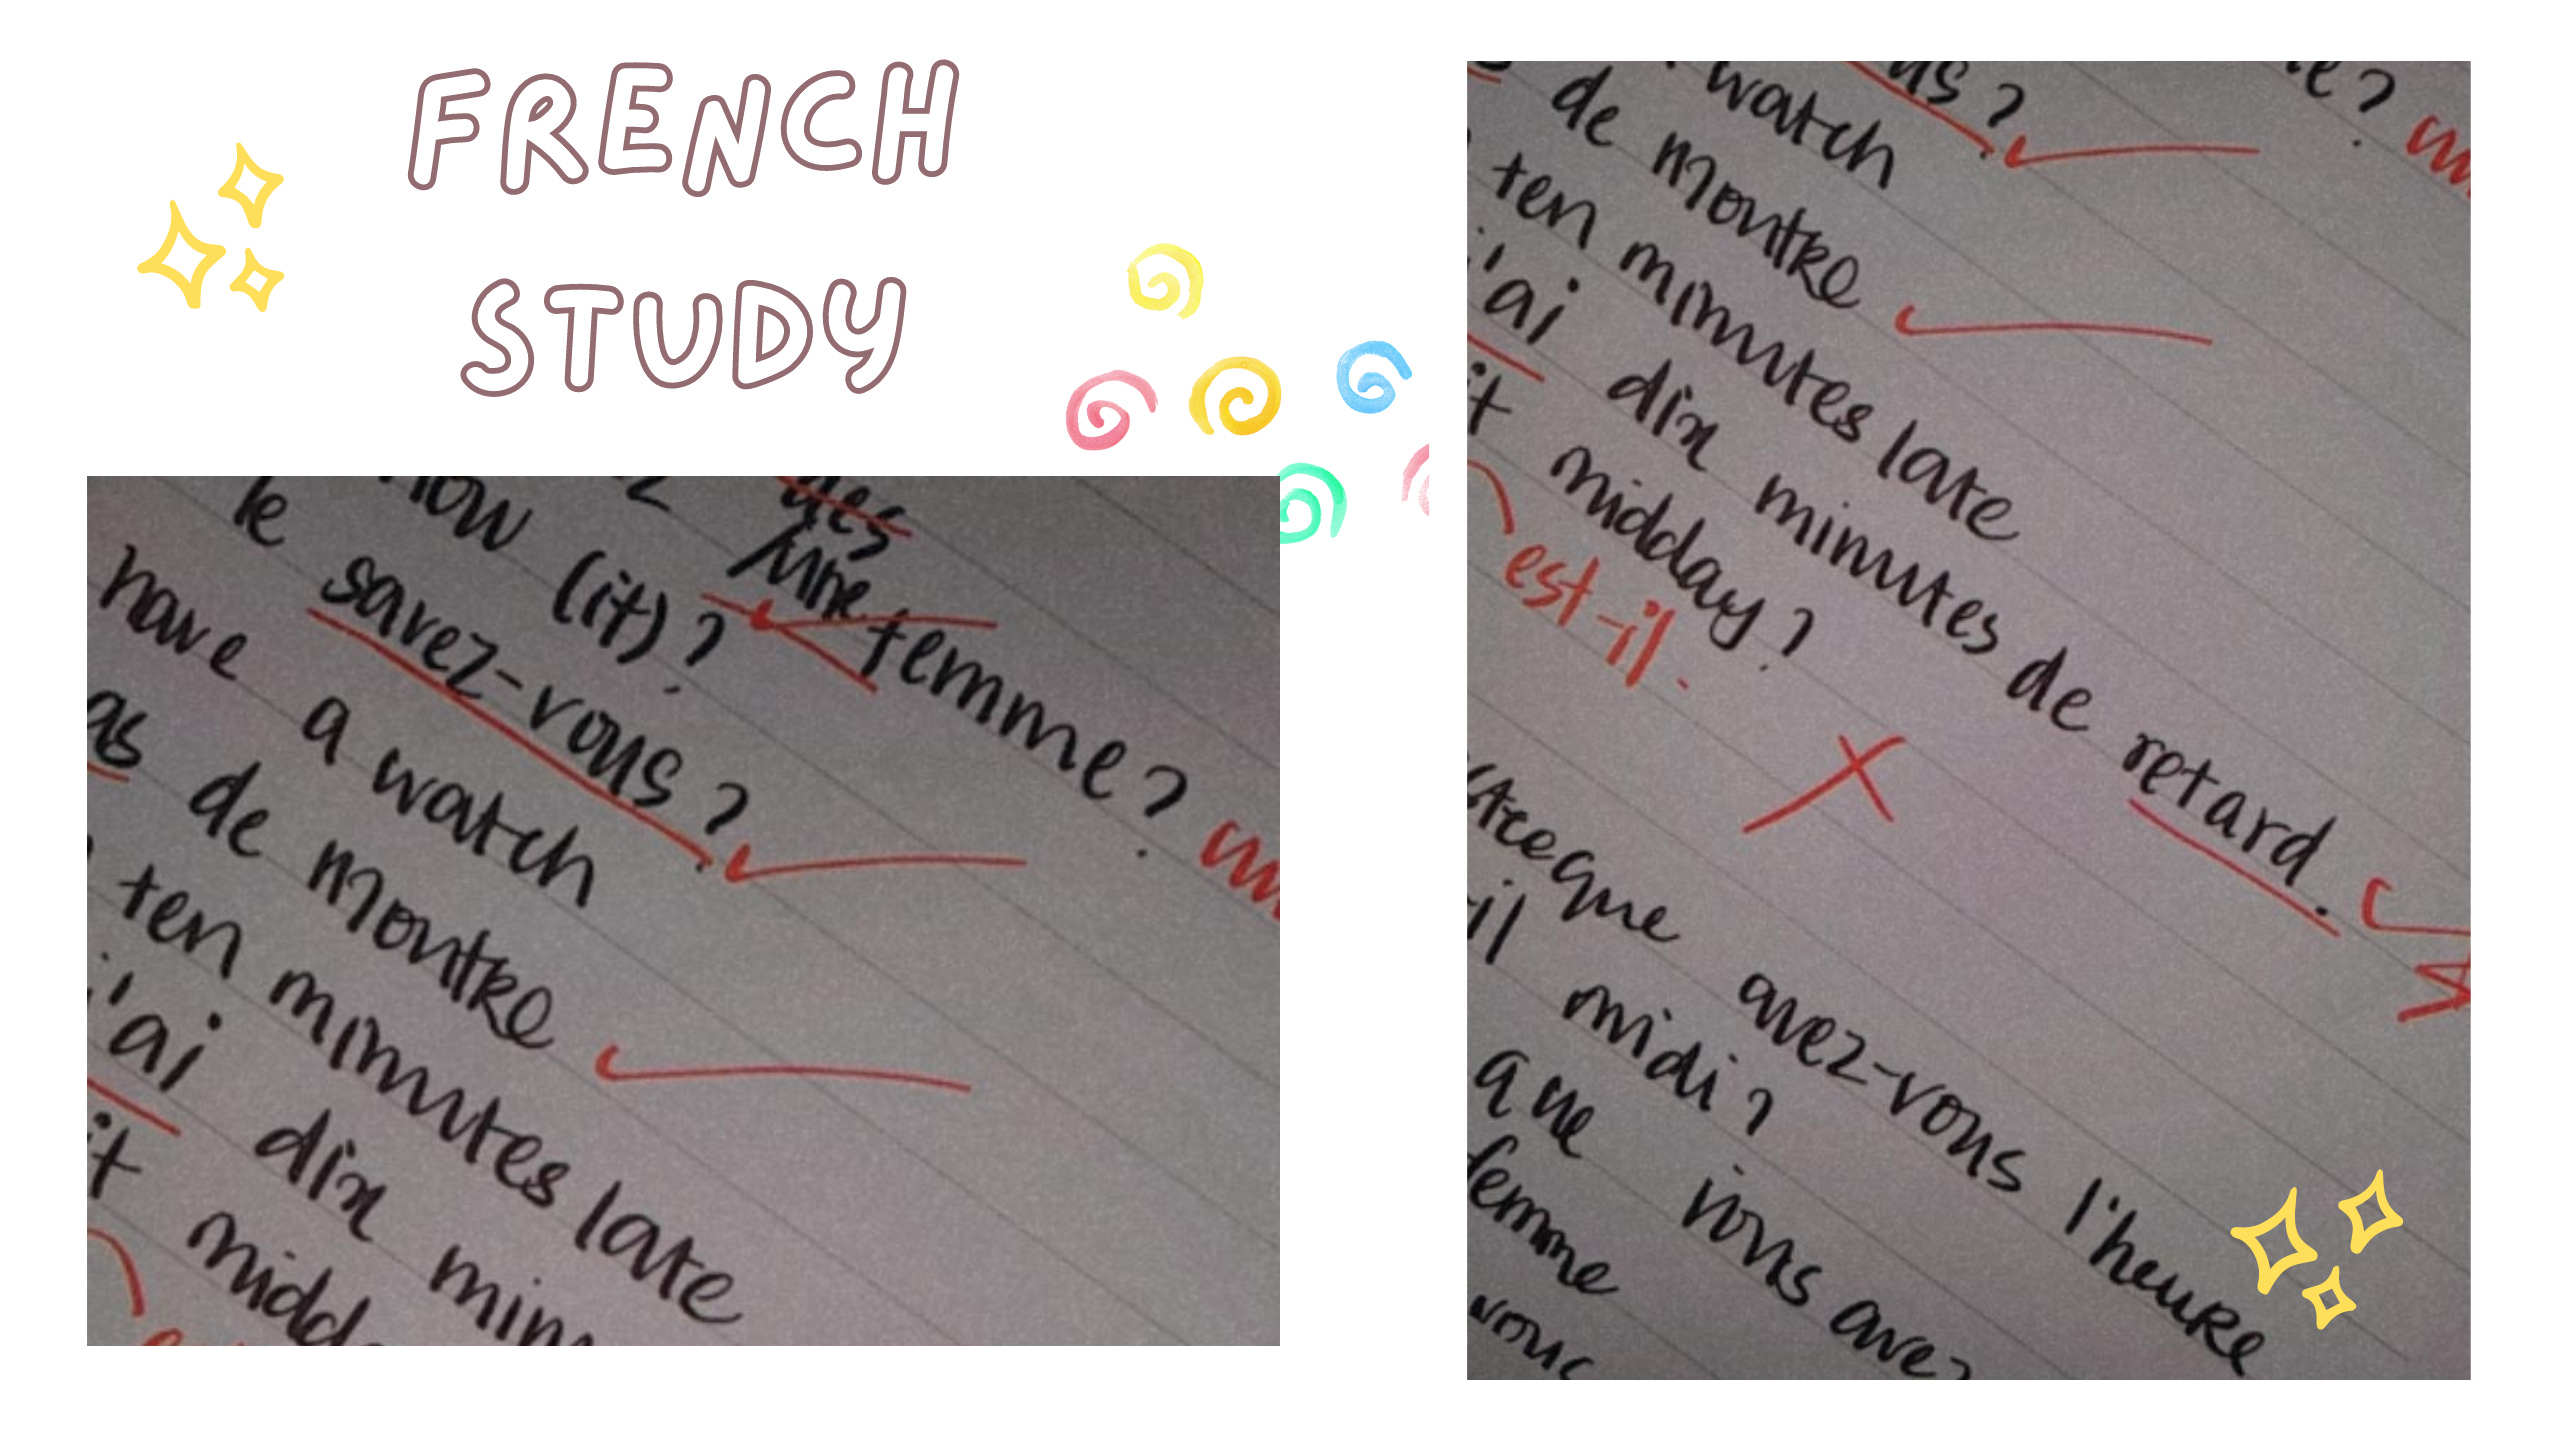 FRENCH
STUDY
des
une femme?
now (it)?
le savez-vous?
have a watch
as de montre
ten minutes late
j'ai dix min
it midd
us?
e?
watch
de montre
ten minutes late
j'ai dix minutes de retard.
it midday?
est-il.
avez-vous l'heure
il midi?
que vous avez
femme
vous